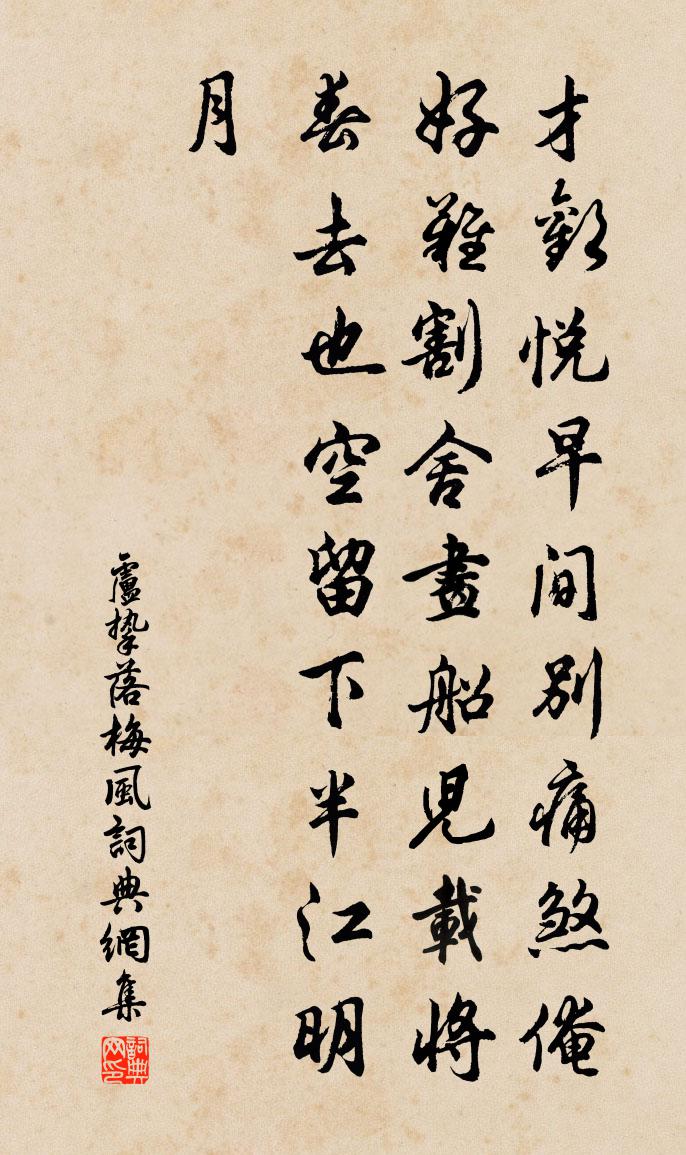 才歡悅早間別痛煞俺
好難割舍畫船兒載將
春去也空留下半江明
月
盧摯落梅風詞典網集
詞典网印